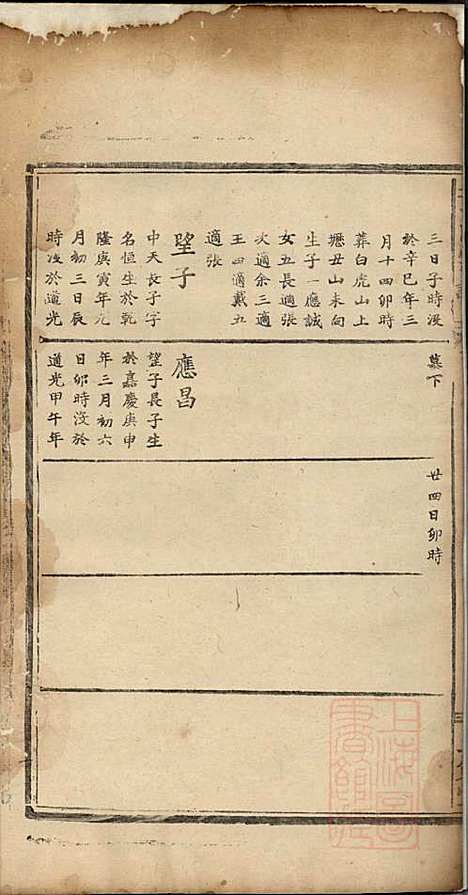 三日子時没
於辛巳年三
月十四卯時
葬白虎山上
壢丑山未向
生子一應誠
女五長適張
次適余三適
王四適戴五
適張
望子
中天長子字
名恒生於乾
隆庚寅年九
月初三日辰
時没於道光
墓下
應昌
望子長子生
於嘉慶庚申
年三月初六
日卯時没於
道光甲午年
廿四日卯時
上海圖
書館藏